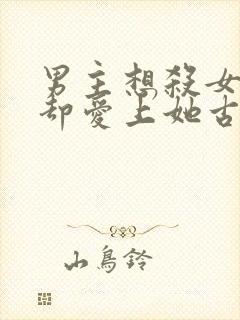 男主想殺女
却愛上她古
山鳥鈴